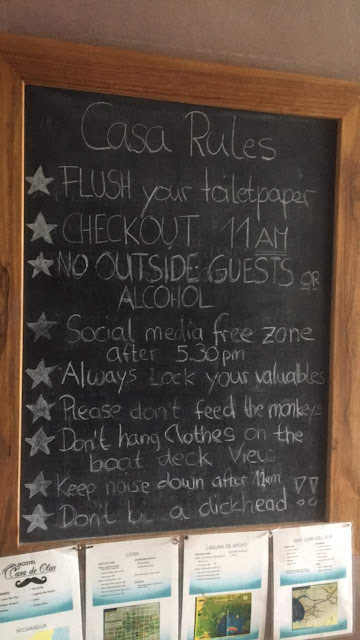 Casa Rules
FLUSH your toiletpaper
CHECKOUT 11AM
NO OUTSIDE GUESTS OR
ALCOHOL
Social media free zone
after 5.30pm
Always Lock your valuables
Please don't feed the monkeys
Don't hang Clothes on the
boat deck View
Keep noise down after 12am !!
Don't be a dickhead
HOSTEL
Casa de Olas
NICARAGUA
LEON
LAGUNA DE APOYO
SAN JUAN DEL SUR